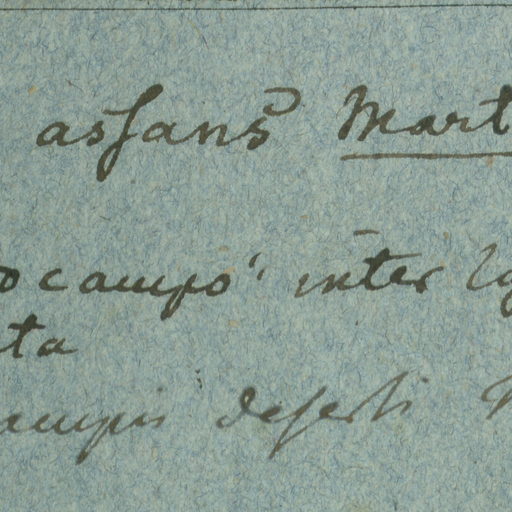 assans Mart
campo inter
ta
campis deserti